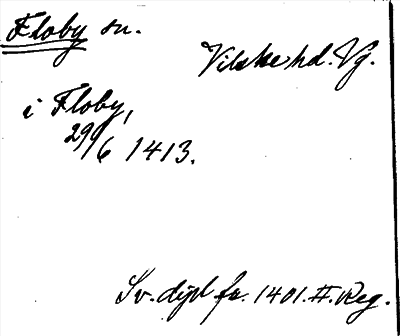 Floby sn.
Vilske hd. Vg.
i Floby,
29/6 1413.
Sv. dipl fr. 1401. II. Reg.